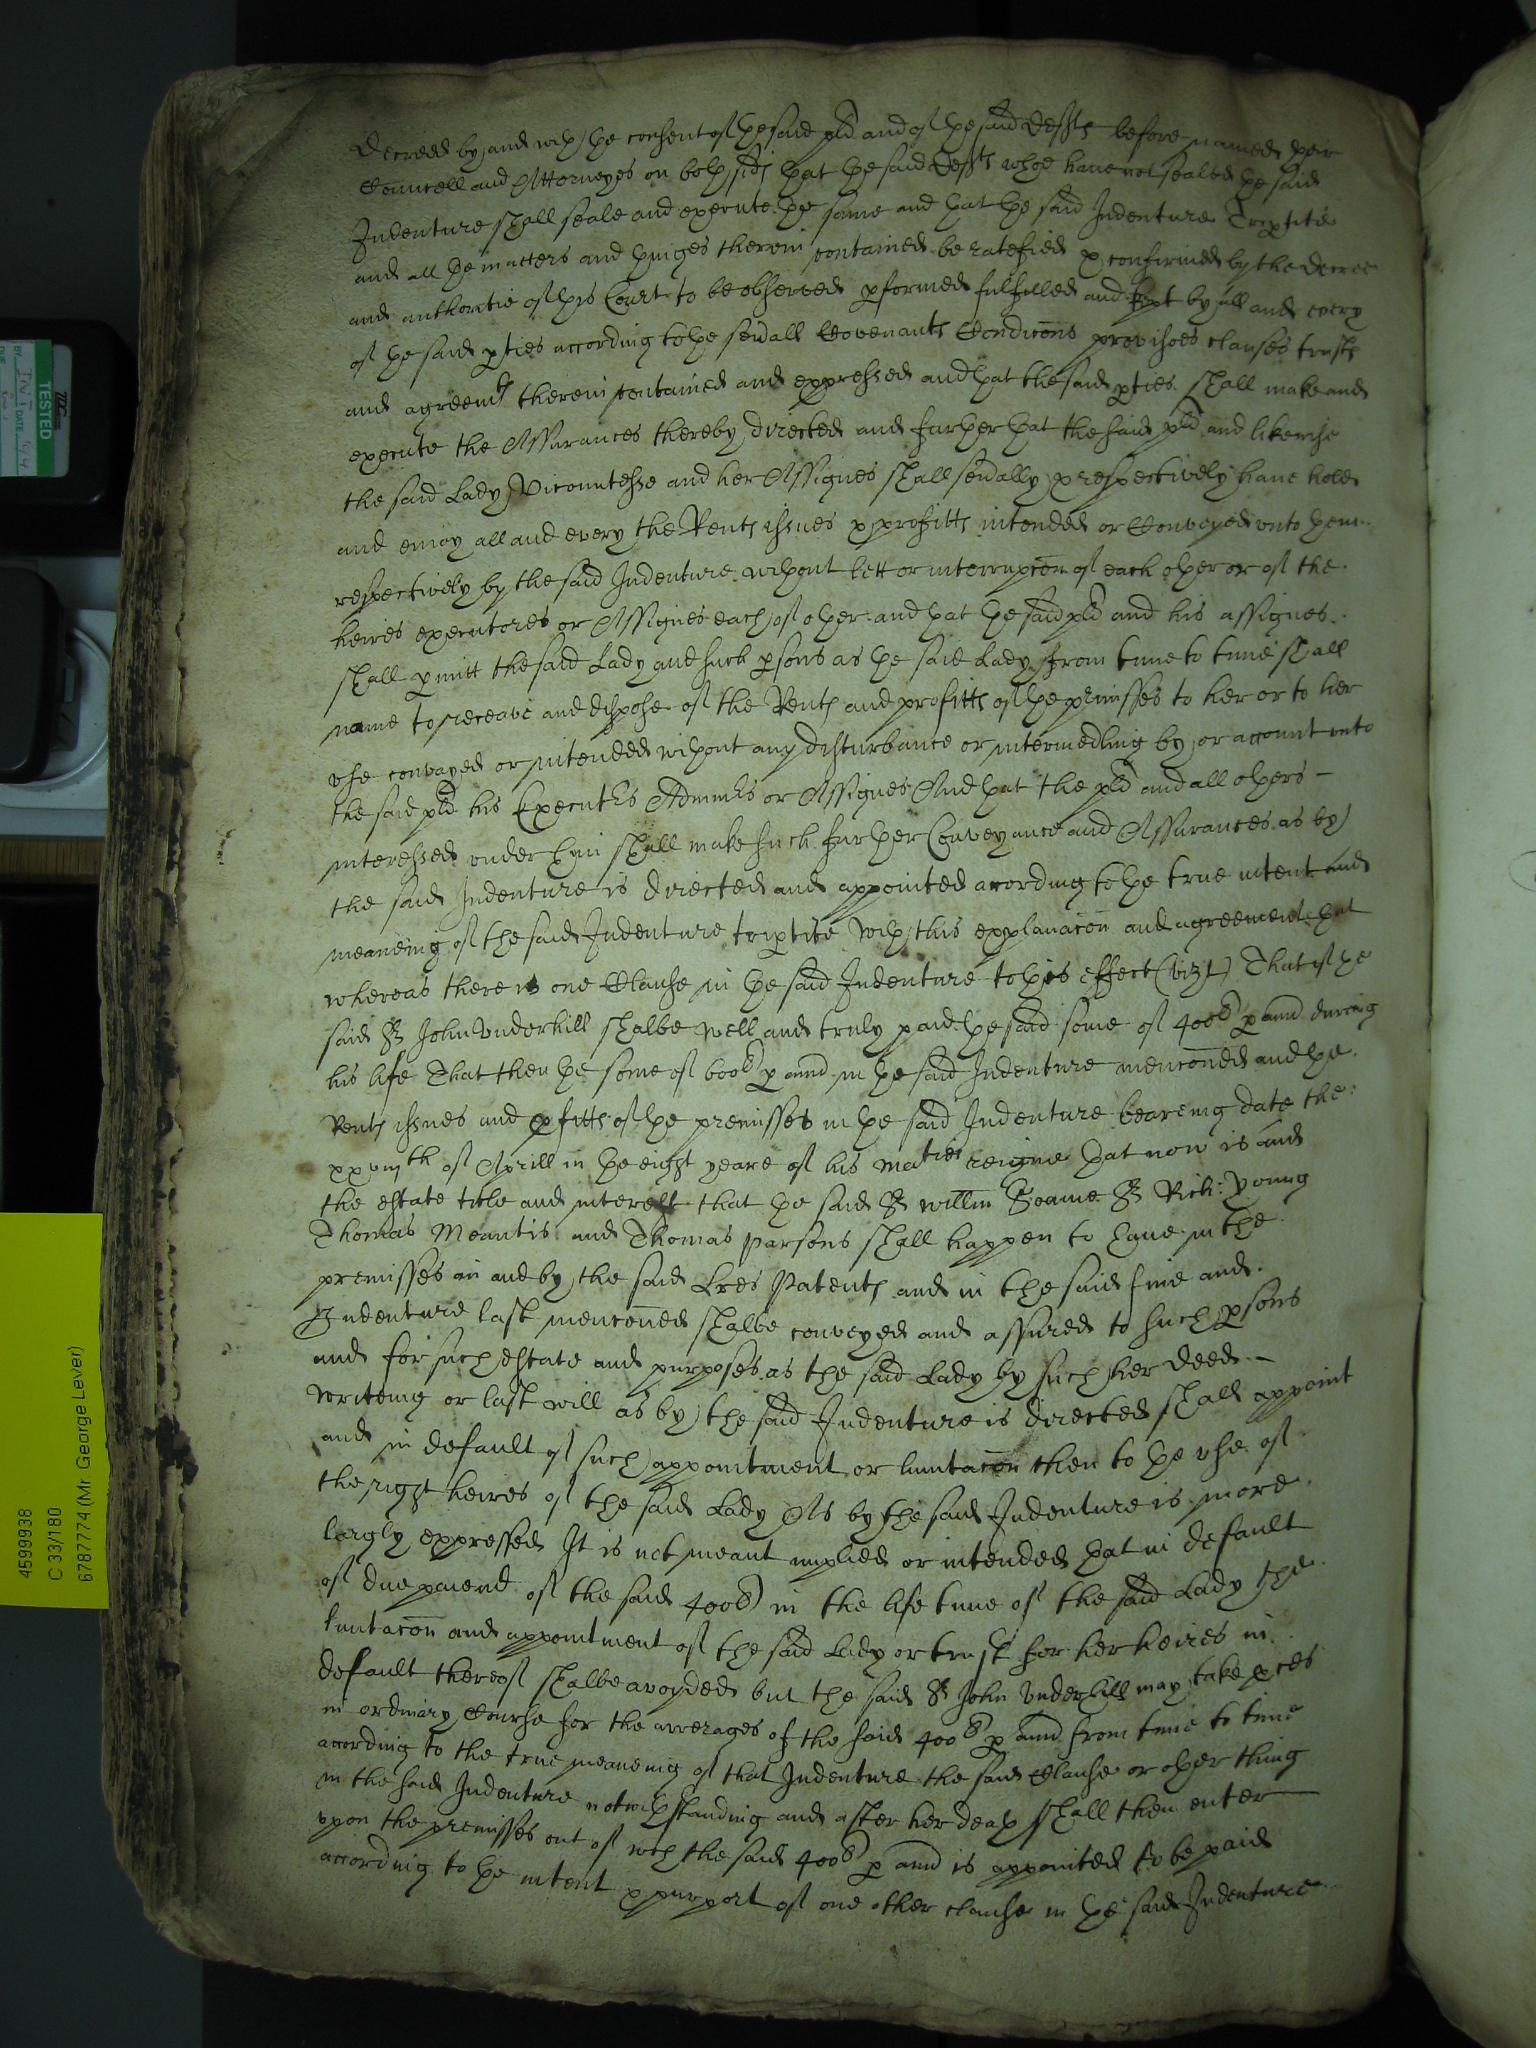 decreed by and wth the consent of the said plt and of the said defts before named their
Councell and Attorneyes on both sids that the said defts whoe have not sealed the said
Indenture shall seale and execute the same and that the said Indenture Triptite
and all the matters and thinges therein contained be ratefied & confirmed by the decree
and authoritie of this Court to be observed pformed fulfilled and kept by all and every
of the said pties according to the sevall Covenants Condicons provisoes clauses trusts
and agreemts therein contained and expressed and that the said pties shall make and
execute the Assurances thereby directed and further that the said plt and likewise
the said Lady Vicountesse and her Assignes shall sevally & respectively have hold
and enioy all and every the Rents issues & profitts intended or Conveyed vnto them
respectively by the said Indenture without lett or interrupcon of each other or of the
heires executores or Assignes each of other and that the said plt and his assignes
shall pmitt the said Lady and such psons as the said Lady from time to time shall
name to receave and dispose of the Rents and profitts of the pmisses to her or to her
vse convayed or intended without any disturbance or intermedling by or account vnto
the said plt his Executrs Adminrs or Assignes And that the plt and all others
interessed vnder him shall make such further Conveyance and Assurances as by
the said Indenture is directed and appointed according to the true intent and
meaneing of the said Indenture triptite with this explanacon and agreement that
whereas there is one Clause in the said Indenture to this effect (vizt) That if the
said Sr John Vnderhill shalbe well and truly paid the said some of 400li p annu during
his life That then the some of 600li p annu in the said Indenture menconed and the
Rents issues and pfitts of the premisses in the said Indenture beareing date the
xxviijth of Aprill in the eight yeare of his maties reigne that now is and
the estate title and interest that the said Sr Willm Seame Sr Rich: Young
Thomas Meautis and Thomas Parsons shall happen to have in the
premisses in and by the said Lres Patents and in the said fine and
Indenture last menconed shalbe conveyed and assured to such psons
and for such estate and purposes as the said Lady by such her deed
writeing or last will as by the said Indenture is directed shall appoint
and in default of such appointment or limitacon then to the vse of
the right heires of the said Lady As by the said Indenture is more
largly expressed It is not meant implied or intended that in default
of due paiemt of the said 400li in the life time of the said Lady the
limitacon and appointment of the said Lady or trust for her heires in
default thereof shalbe avoyded but the said Sr John Vnderhill may take pces
in ordinary Course for the arrerages of the said 400li p annu from time to time
according to the true meaneing of that Indenture the said Clause or other thing
in the said Indenture notwthstanding and after her death shall then enter
vpon the premisses out of wch the said 400li p annu is appointed to be paid
according to the intent & purport of one other clause in the said Indenture
TESTED
BY
DATE
4599938
C 33/180
6787774 (Mr. George Lever)